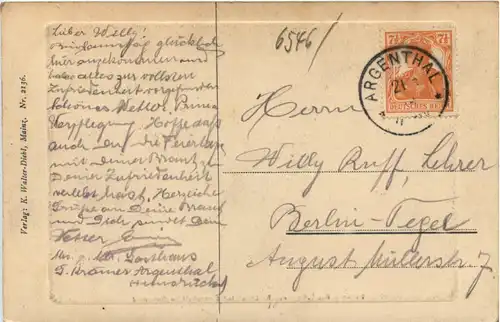 Lieber Willy!
glücklich
hier angekommen und
habe alles zur vollsten
Zufriedenheit vorgefunden
schönes Wetter, Prima
Verpflegung. Hoffe daß
auch du die Feiertage
mit deiner Braut zu
Deiner Zufriedenheit
verlebt hast. Herzliche
Grüße an Deine Braut
und Dich sendet Dein
Vetter
Forsthaus
Argenthal
Hunsrück
Verlag: K. Walter-Diehl, Mainz. Nr. 2136.
6546/
7½ 7½
DEUTSCHES REICH
ARGENTHAL
Herrn
Willy Ruff, Lehrer
Berlin-Tegel
August Müllerstr 7